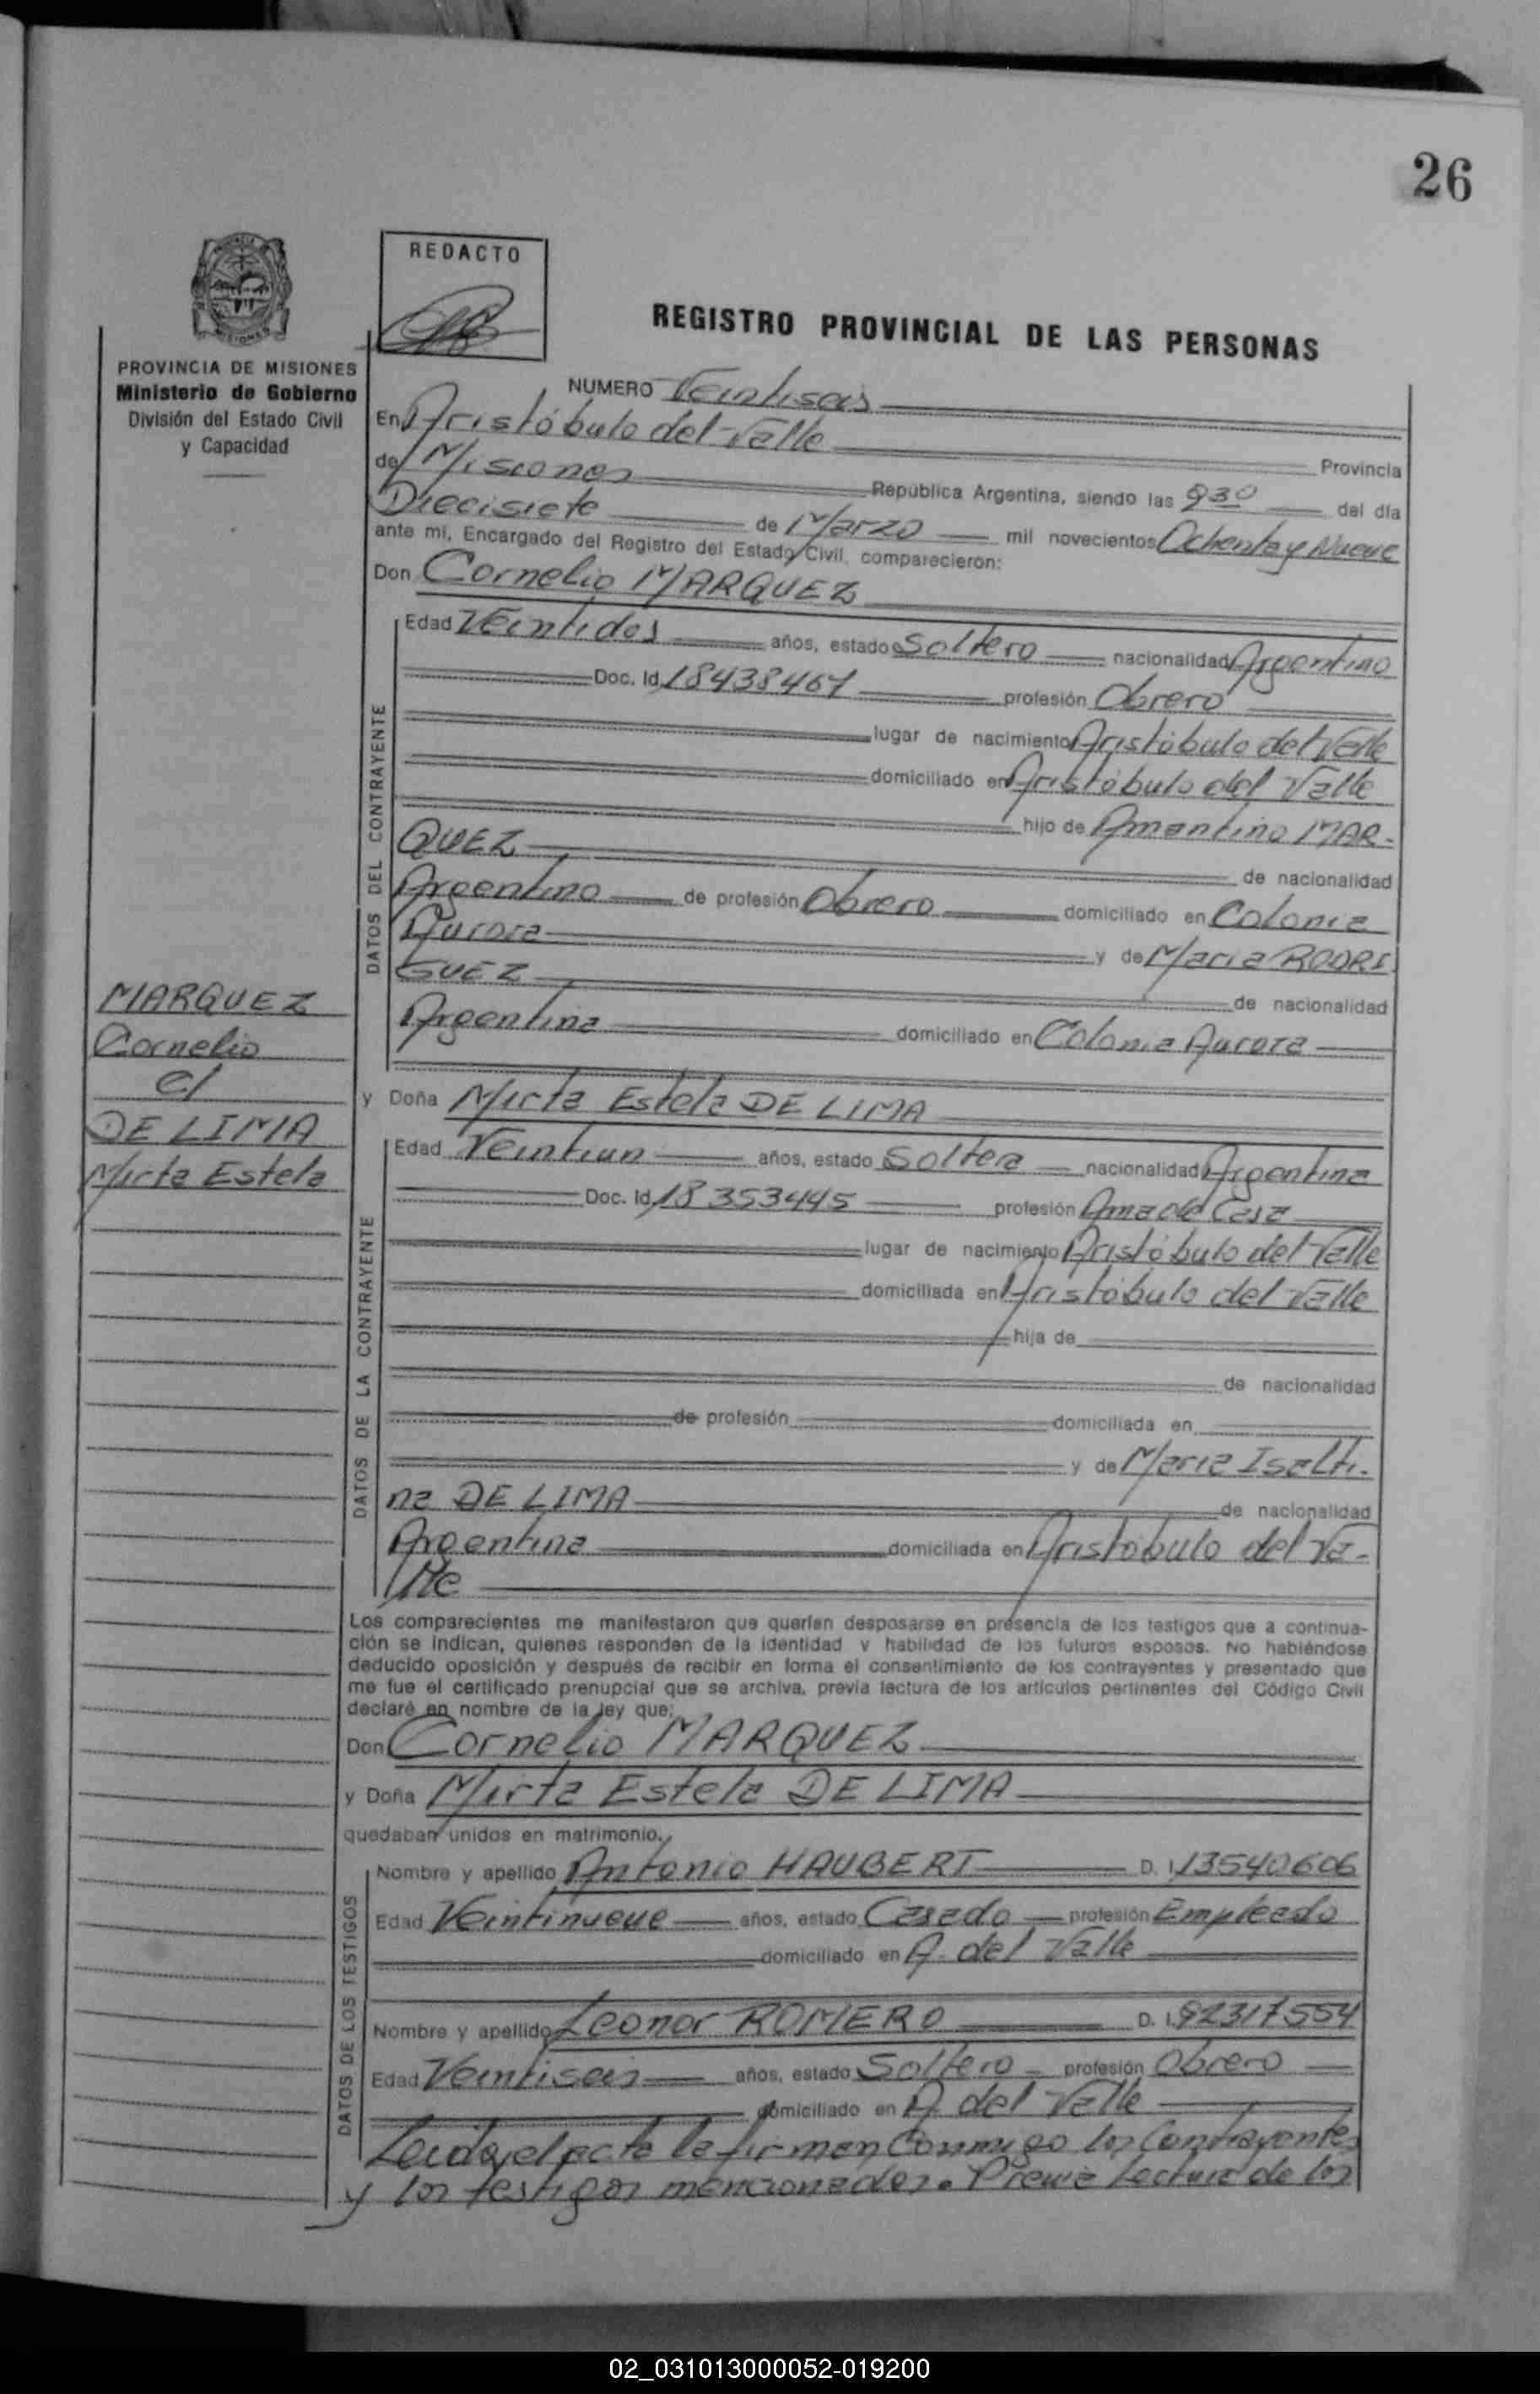 26
REDACTO
REGISTRO PROVINCIAL DE LAS PERSONAS
PROVINCIA DE MISIONES
Ministerio de Gobierno
División del Estado Civil
y Capacidad
NUMERO Veintiseis
En Aristóbulo del Valle
Provincia
de Misiones República Argentina, siendo las 930 del día
Diecisiete de Marzo mil novecientos Ochenta y Nueve
ante mí, Encargado del Registro del Estado Civil, comparecieron:
Don Cornelio MARQUEZ
DATOS DEL CONTRAYENTE
Edad Veintidos años, estado Soltero nacionalidad Argentino
Doc. Id. 18438467 profesión Obrero
lugar de nacimiento Aristóbulo del Valle
domiciliado en Aristóbulo del Valle
hijo de Amantino MAR-
QUEZ de nacionalidad
Argentino de profesión Obrero domiciliado en Colonia
Aurora y de Maria RODRI
GUEZ de nacionalidad
Argentina domiciliado en Colonia Aurora
MARQUEZ
Cornelio
c/
DE LIMA
Mirta Estela
y Doña Mirta Estela DE LIMA
DATOS DE LA CONTRAYENTE
Edad Veintiun años, estado Soltera nacionalidad Argentina
Doc. Id. 18353445 profesión Ama de Casa
lugar de nacimiento Aristóbulo del Valle
domiciliada en Aristóbulo del Valle
hija de
de nacionalidad
de profesión domiciliada en
y de Maria Isalti-
na DE LIMA de nacionalidad
Argentina domiciliada en Aristóbulo del Va-
lle
Los comparecientes me manifestaron que querían desposarse en presencia de los testigos que a continua-
ción se indican, quienes responden de la identidad y habilidad de los futuros esposos. No habiéndose
deducido oposición y después de recibir en forma el consentimiento de los contrayentes y presentado que
me fue el certificado prenupcial que se archiva, previa lectura de los artículos pertinentes del Código Civil
declaré en nombre de la ley que:
Don Cornelio MARQUEZ
y Doña Mirta Estela DE LIMA
quedaban unidos en matrimonio.
DATOS DE LOS TESTIGOS
Nombre y apellido Antonio HAUBERT D. I. 13540606
Edad Veintinueve años, estado Casado profesión Empleado
domiciliado en A. del Valle
Nombre y apellido Leonor ROMERO D. I. 92317554
Edad Veintiseis años, estado Soltero profesión Obrero
domiciliado en A. del Valle
Leida el acta la firman Conmigo los Contrayentes
y los testigos mencionados. Previa Lectura de los
02_031013000052-019200